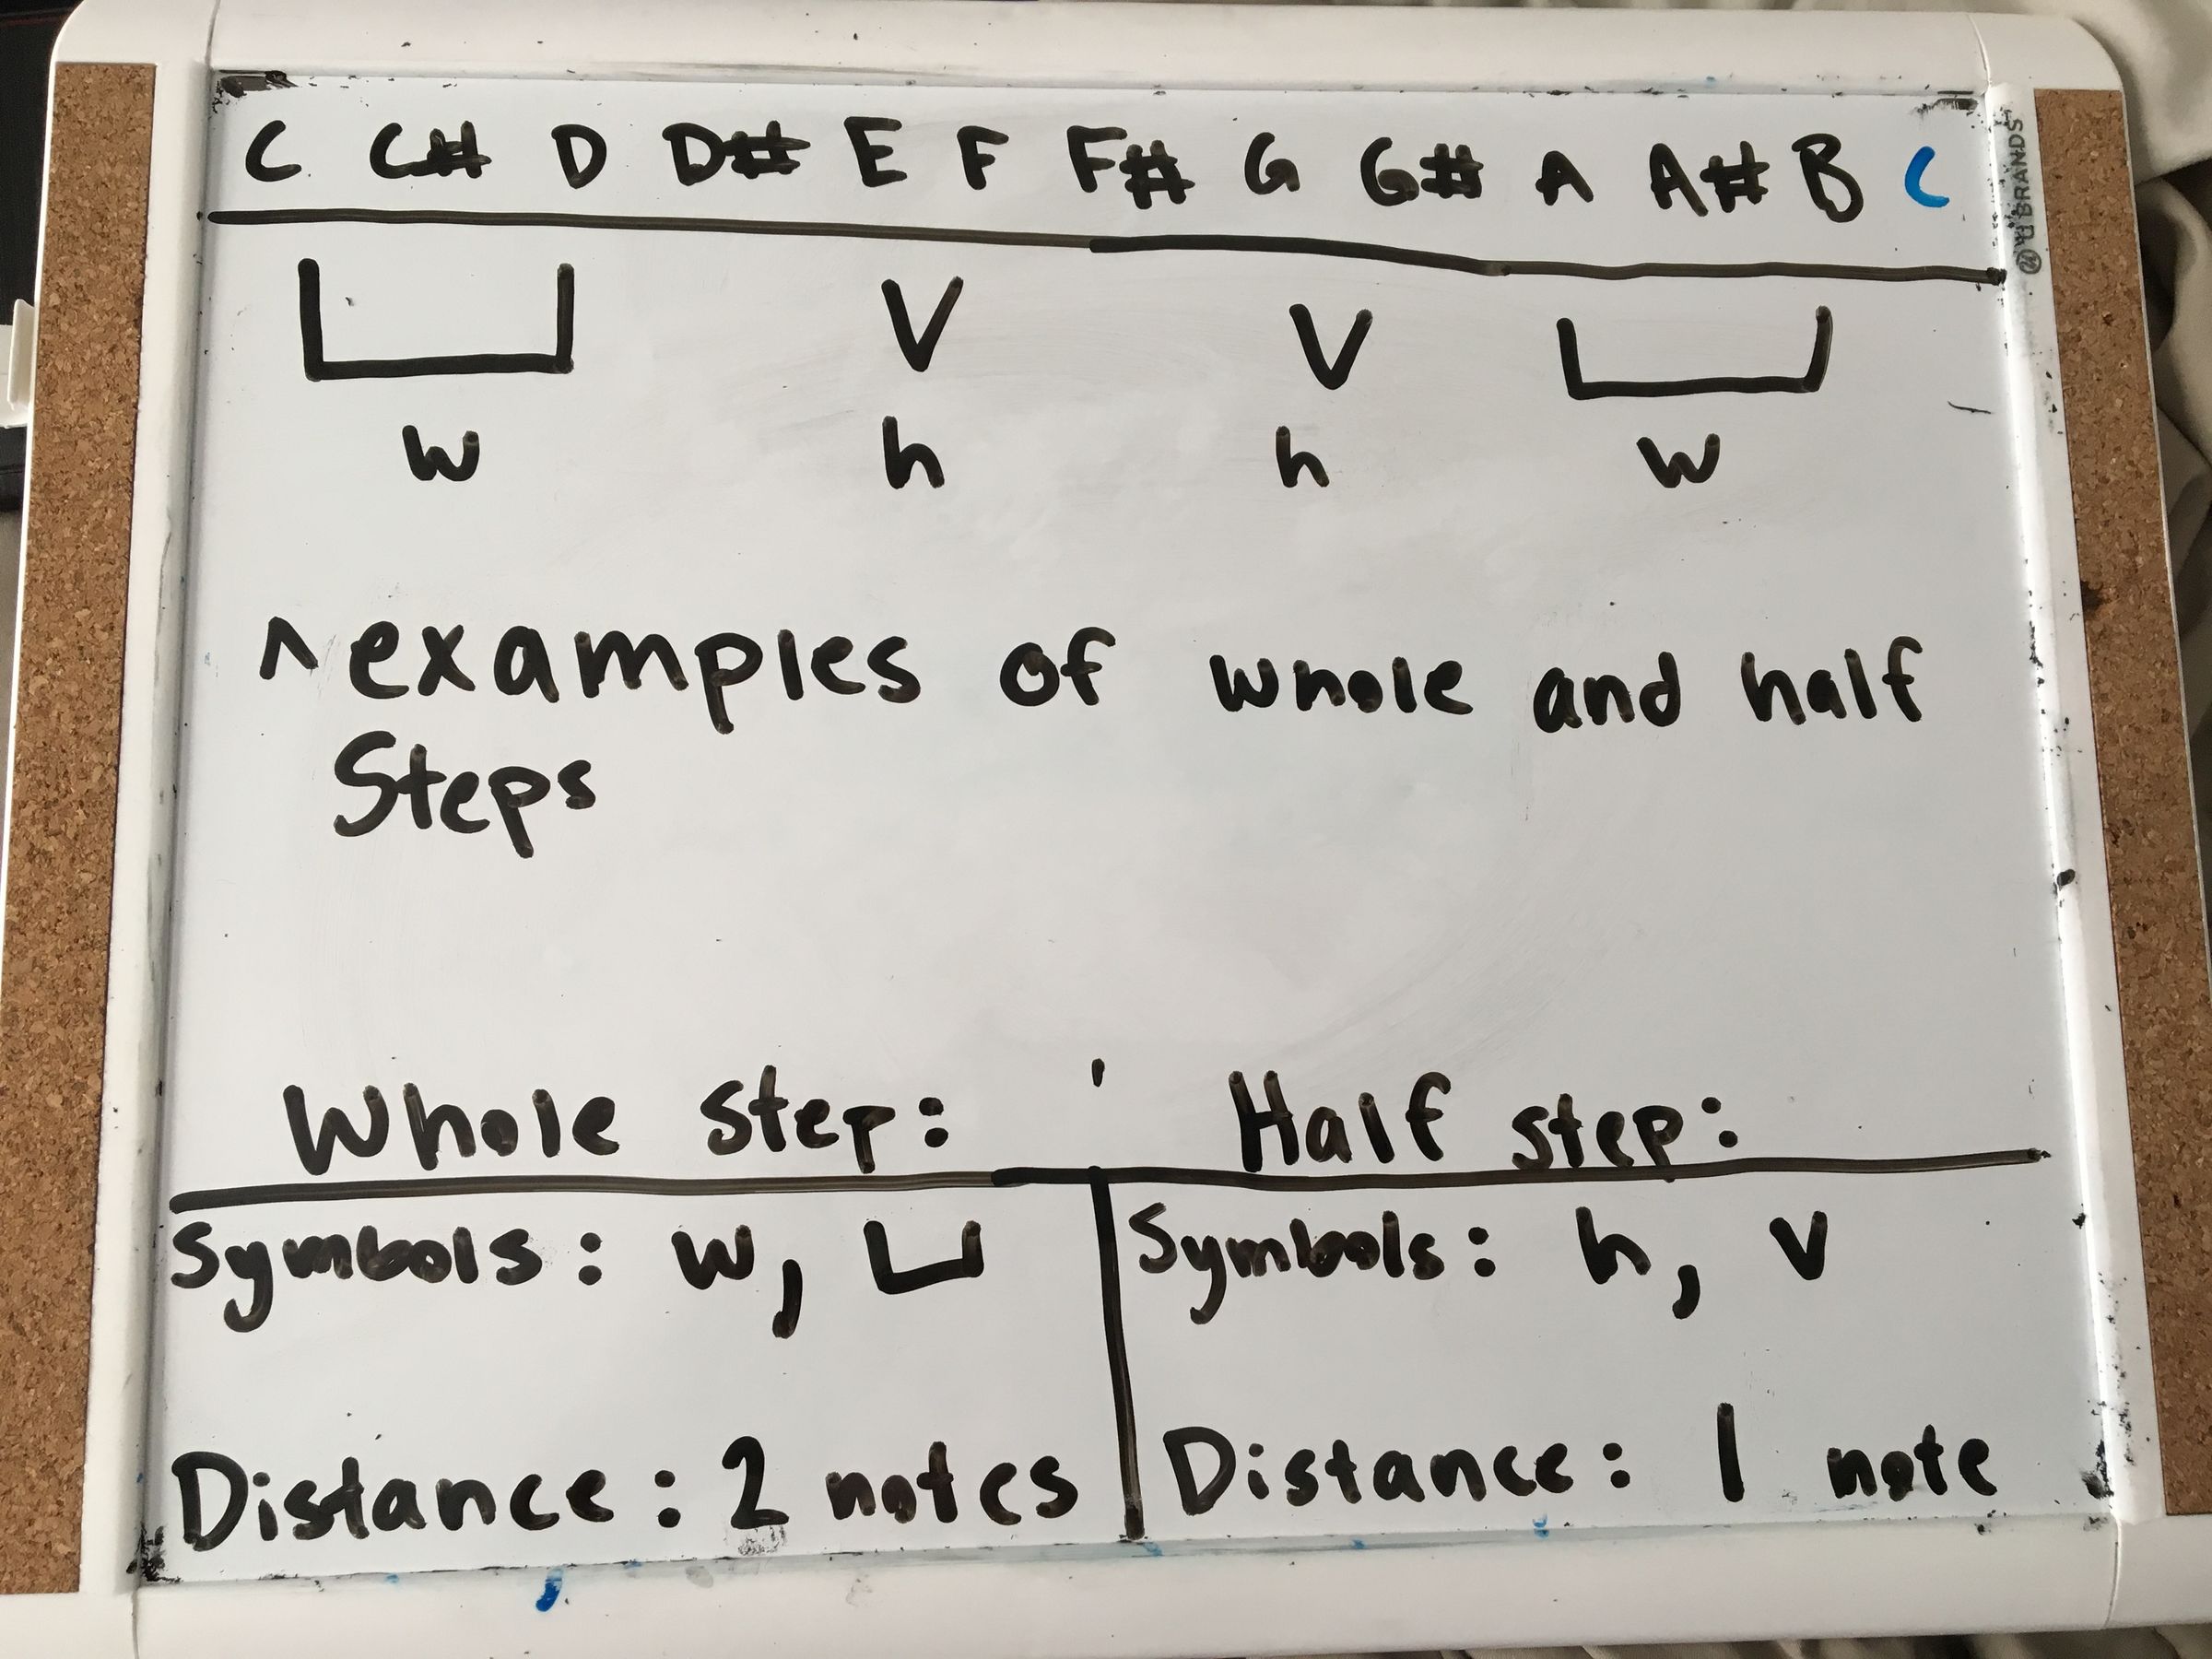 C C# D D# E F F# G G# A A# B C
w h h w
^examples of whole and half
Steps
Whole step: Half step:
Symbols: w, ⊔ Symbols: h, v
Distance: 2 notes Distance: 1 note
U BRANDS